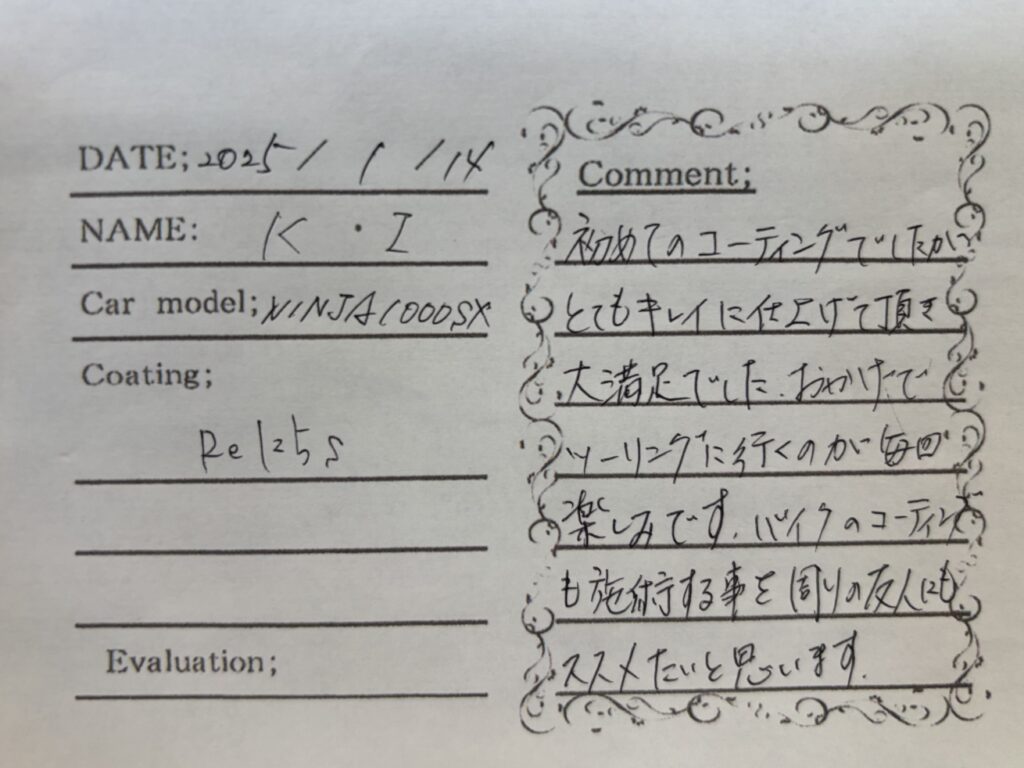 DATE; 2025/1/14
NAME: K・I
Car model; NINJA1000SX
Coating;
Evaluation;
Comment;
初めてのコーティングでしたが
とてもキレイに仕上げて頂き
大満足でした.おかげで
ツーリングに行くのが毎回
楽しみです.バイクのコーティング
も施術する事を周りの友人にも
ススメたいと思います.